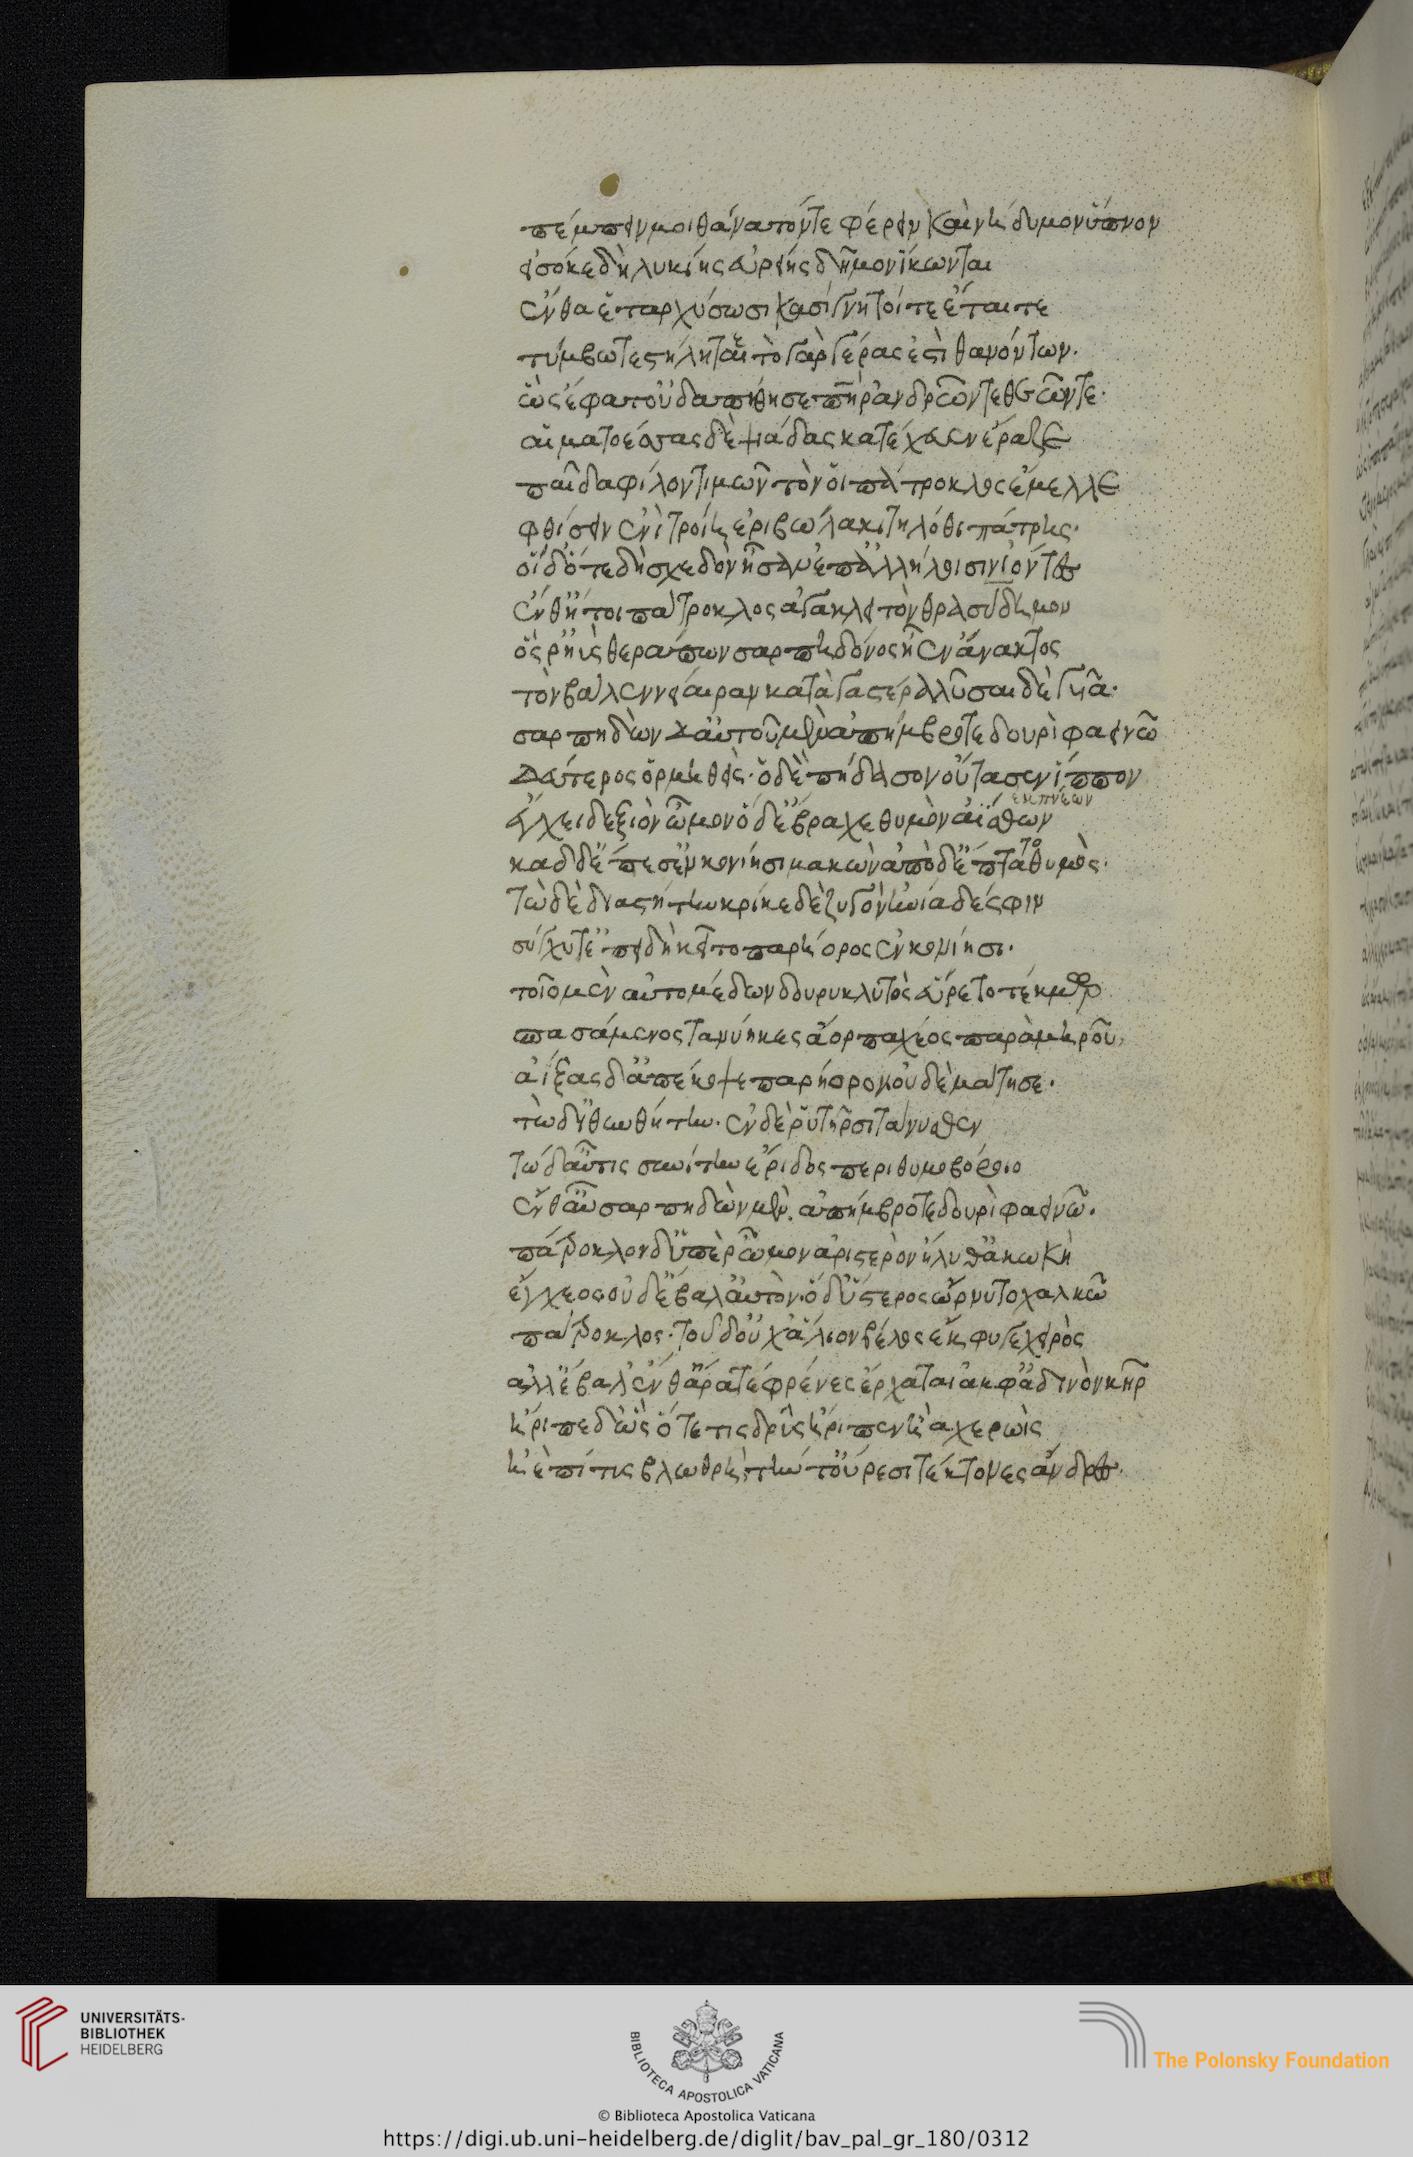 πέμπειν μοι θάνατόν τε φέρειν καὶ νήδυμον ὕπνον
εἰσόκε δὴ λυκίης εὐρείης δῆμον ἵκωνται
ἔνθα ἑ ταρχύσωσι κασίγνητοί τε ἔται τε
τύμβω τε στήλη τε τὸ γὰρ γέρας ἐστὶ θανόντων.
ὣς ἔφατ οὐδ ἀπίθησε πατὴρ ἀνδρῶν τε θεῶν τε.
αἱματοέσσας δὲ ψιάδας κατέχευεν ἔραζε
παῖδα φίλον τιμῶν τόν οἱ πάτροκλος ἔμελλε
φθίσειν ἐνὶ τροίη ἐριβώλακι τηλόθι πάτρης.
οἱ δ ὅτε δὴ σχεδὸν ἦσαν ἐπ ἀλλήλοισιν ἰόντες
ἔνθ ἤτοι πάτροκλος ἀγακλειτὸν θρασύδημον
ὅς ῥ ἠῢς θεράπων σαρπηδόνος ἦεν ἄνακτος
τὸν βάλεν νείαιραν κατὰ γαστέρα λῦσε δὲ γυῖα.
σαρπηδὼν δ αὐτοῦ μὲν ἀπήμβροτε δουρὶ φαεινῶ
δεύτερος ὁρμηθείς. ὁ δὲ πήδασον οὔτασεν ἵππον
ἔγχει δεξιὸν ὦμον ὁ δ ἔβραχε θυμὸν ἀΐσθων
εκπνέων
καδ δ ἔπεσ ἐν κονίησι μακών ἀπὸ δ ἔπτατο θυμός.
τὼ δὲ διαστήτην κρίκε δὲ ζυγόν ἡνία δέ σφιν
σύγχυτ ἐπειδὴ κεῖτο παρήορος ἐν κονίησι.
τοῖο μὲν αὐτομέδων δουρυκλυτὸς εὕρετο τέκμωρ
σπασάμενος τανύηκες ἄορ παχέος παρὰ μηροῦ,
ἀΐξας δ ἀπέκοψε παρήορον οὐδὲ μάτησε.
τὼ δ ἰθυνθήτην. ἐν δὲ ῥυτῆρσι τάνυσθεν
τὼ δ αὖτις συνίτην ἔριδος περὶ θυμοβόροιο
ἔνθ αὖ σαρπηδὼν μὲν ἀπήμβροτε δουρὶ φαεινῶ.
πάτροκλον δ ὑπὲρ ὦμον ἀριστερὸν ἤλυθ ἀκωκὴ
ἔγχεος οὐδ ἔβαλ αὐτόν. ὁ δ ὕστερος ὤρνυτο χαλκῶ
πάτροκλος. τοῦ δ οὐχ ἅλιον βέλος ἔκφυγε χειρὸς
ἀλλ ἔβαλ ἔνθ ἄρα τε φρένες ἔρχαται ἀμφ ἀδινὸν κῆρ
ἤριπε δ ὡς ὅτε τις δρῦς ἤριπεν ἢ ἀχερωὶς
ἠὲ πίτις βλωθρή, τήν τ οὔρεσι τέκτονες ἄνδρες.
UNIVERSITÄTS-
BIBLIOTHEK
HEIDELBERG
BIBLIOTECA APOSTOLICA VATICANA
The Polonsky Foundation
© Biblioteca Apostolica Vaticana
https://digi.ub.uni-heidelberg.de/diglit/bav_pal_gr_180/0312